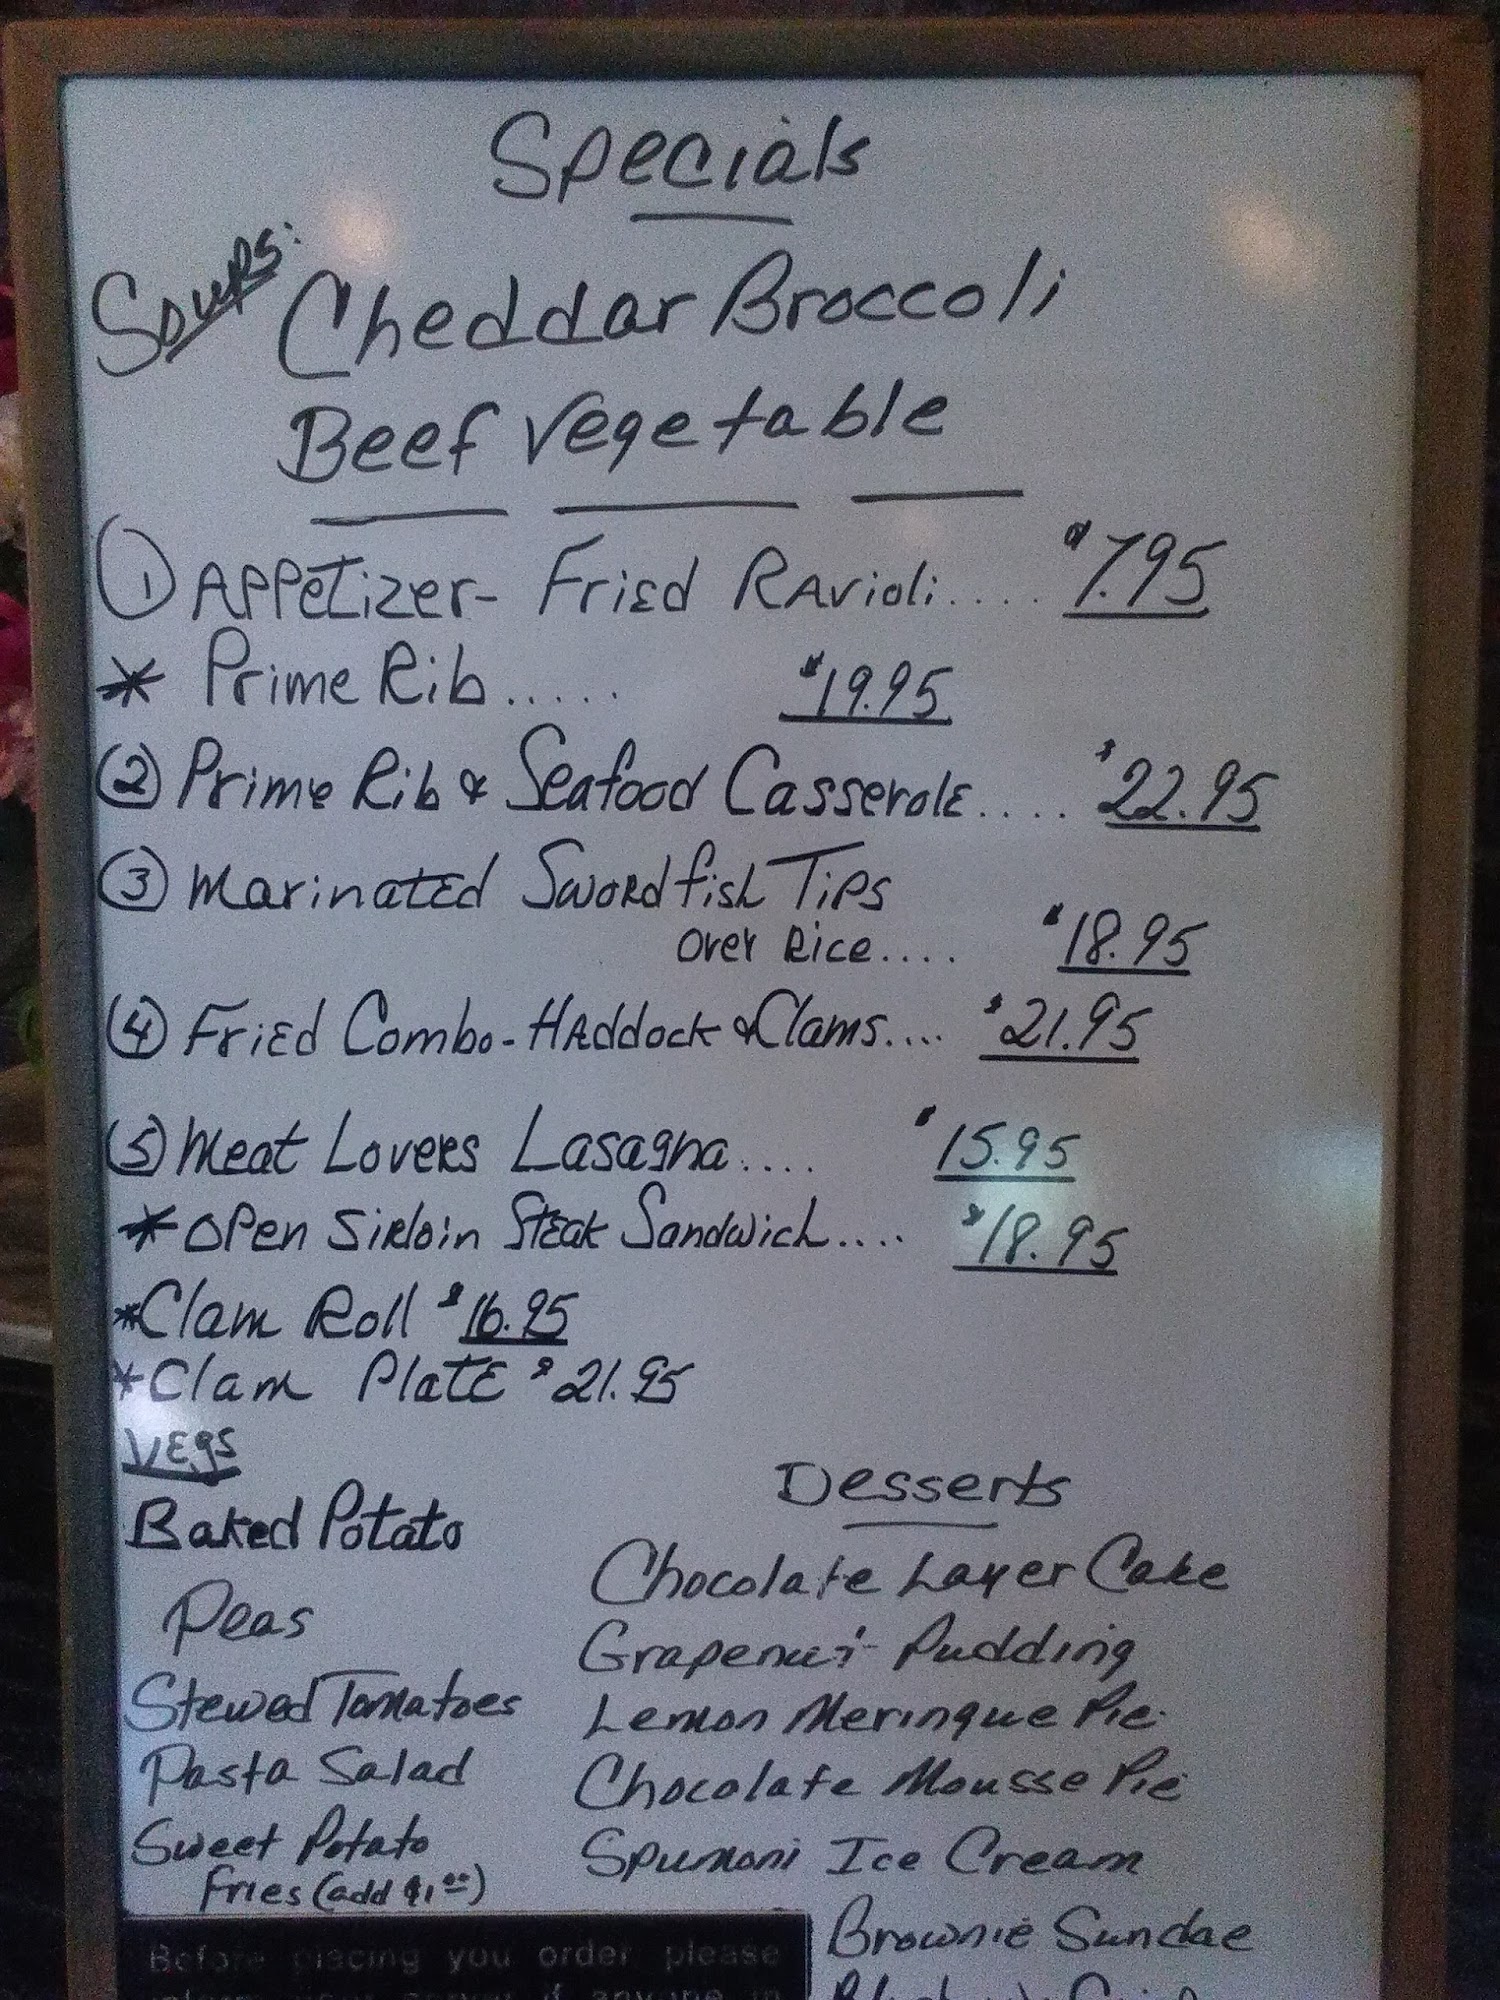 Specials
Soups: Cheddar Broccoli
Beef Vegetable
① Appetizer - Fried Ravioli.... $7.95
* Prime Rib..... $19.95
② Prime Rib & Seafood Casserole.... $22.95
③ Marinated Swordfish Tips
over Rice.... $18.95
④ Fried Combo - Haddock & Clams.... $21.95
⑤ Meat Lovers Lasagna.... $15.95
* Open Sirloin Steak Sandwich.... $18.95
* Clam Roll $16.95
* Clam Plate $21.95
Vegs
Baked Potato
Peas
Stewed Tomatoes
Pasta Salad
Sweet Potato
Fries (add $1.00)
Desserts
Chocolate Layer Cake
Grapenut Pudding
Lemon Meringue Pie
Chocolate Mousse Pie
Spumoni Ice Cream
Brownie Sundae
Before placing you order please
if anyone in